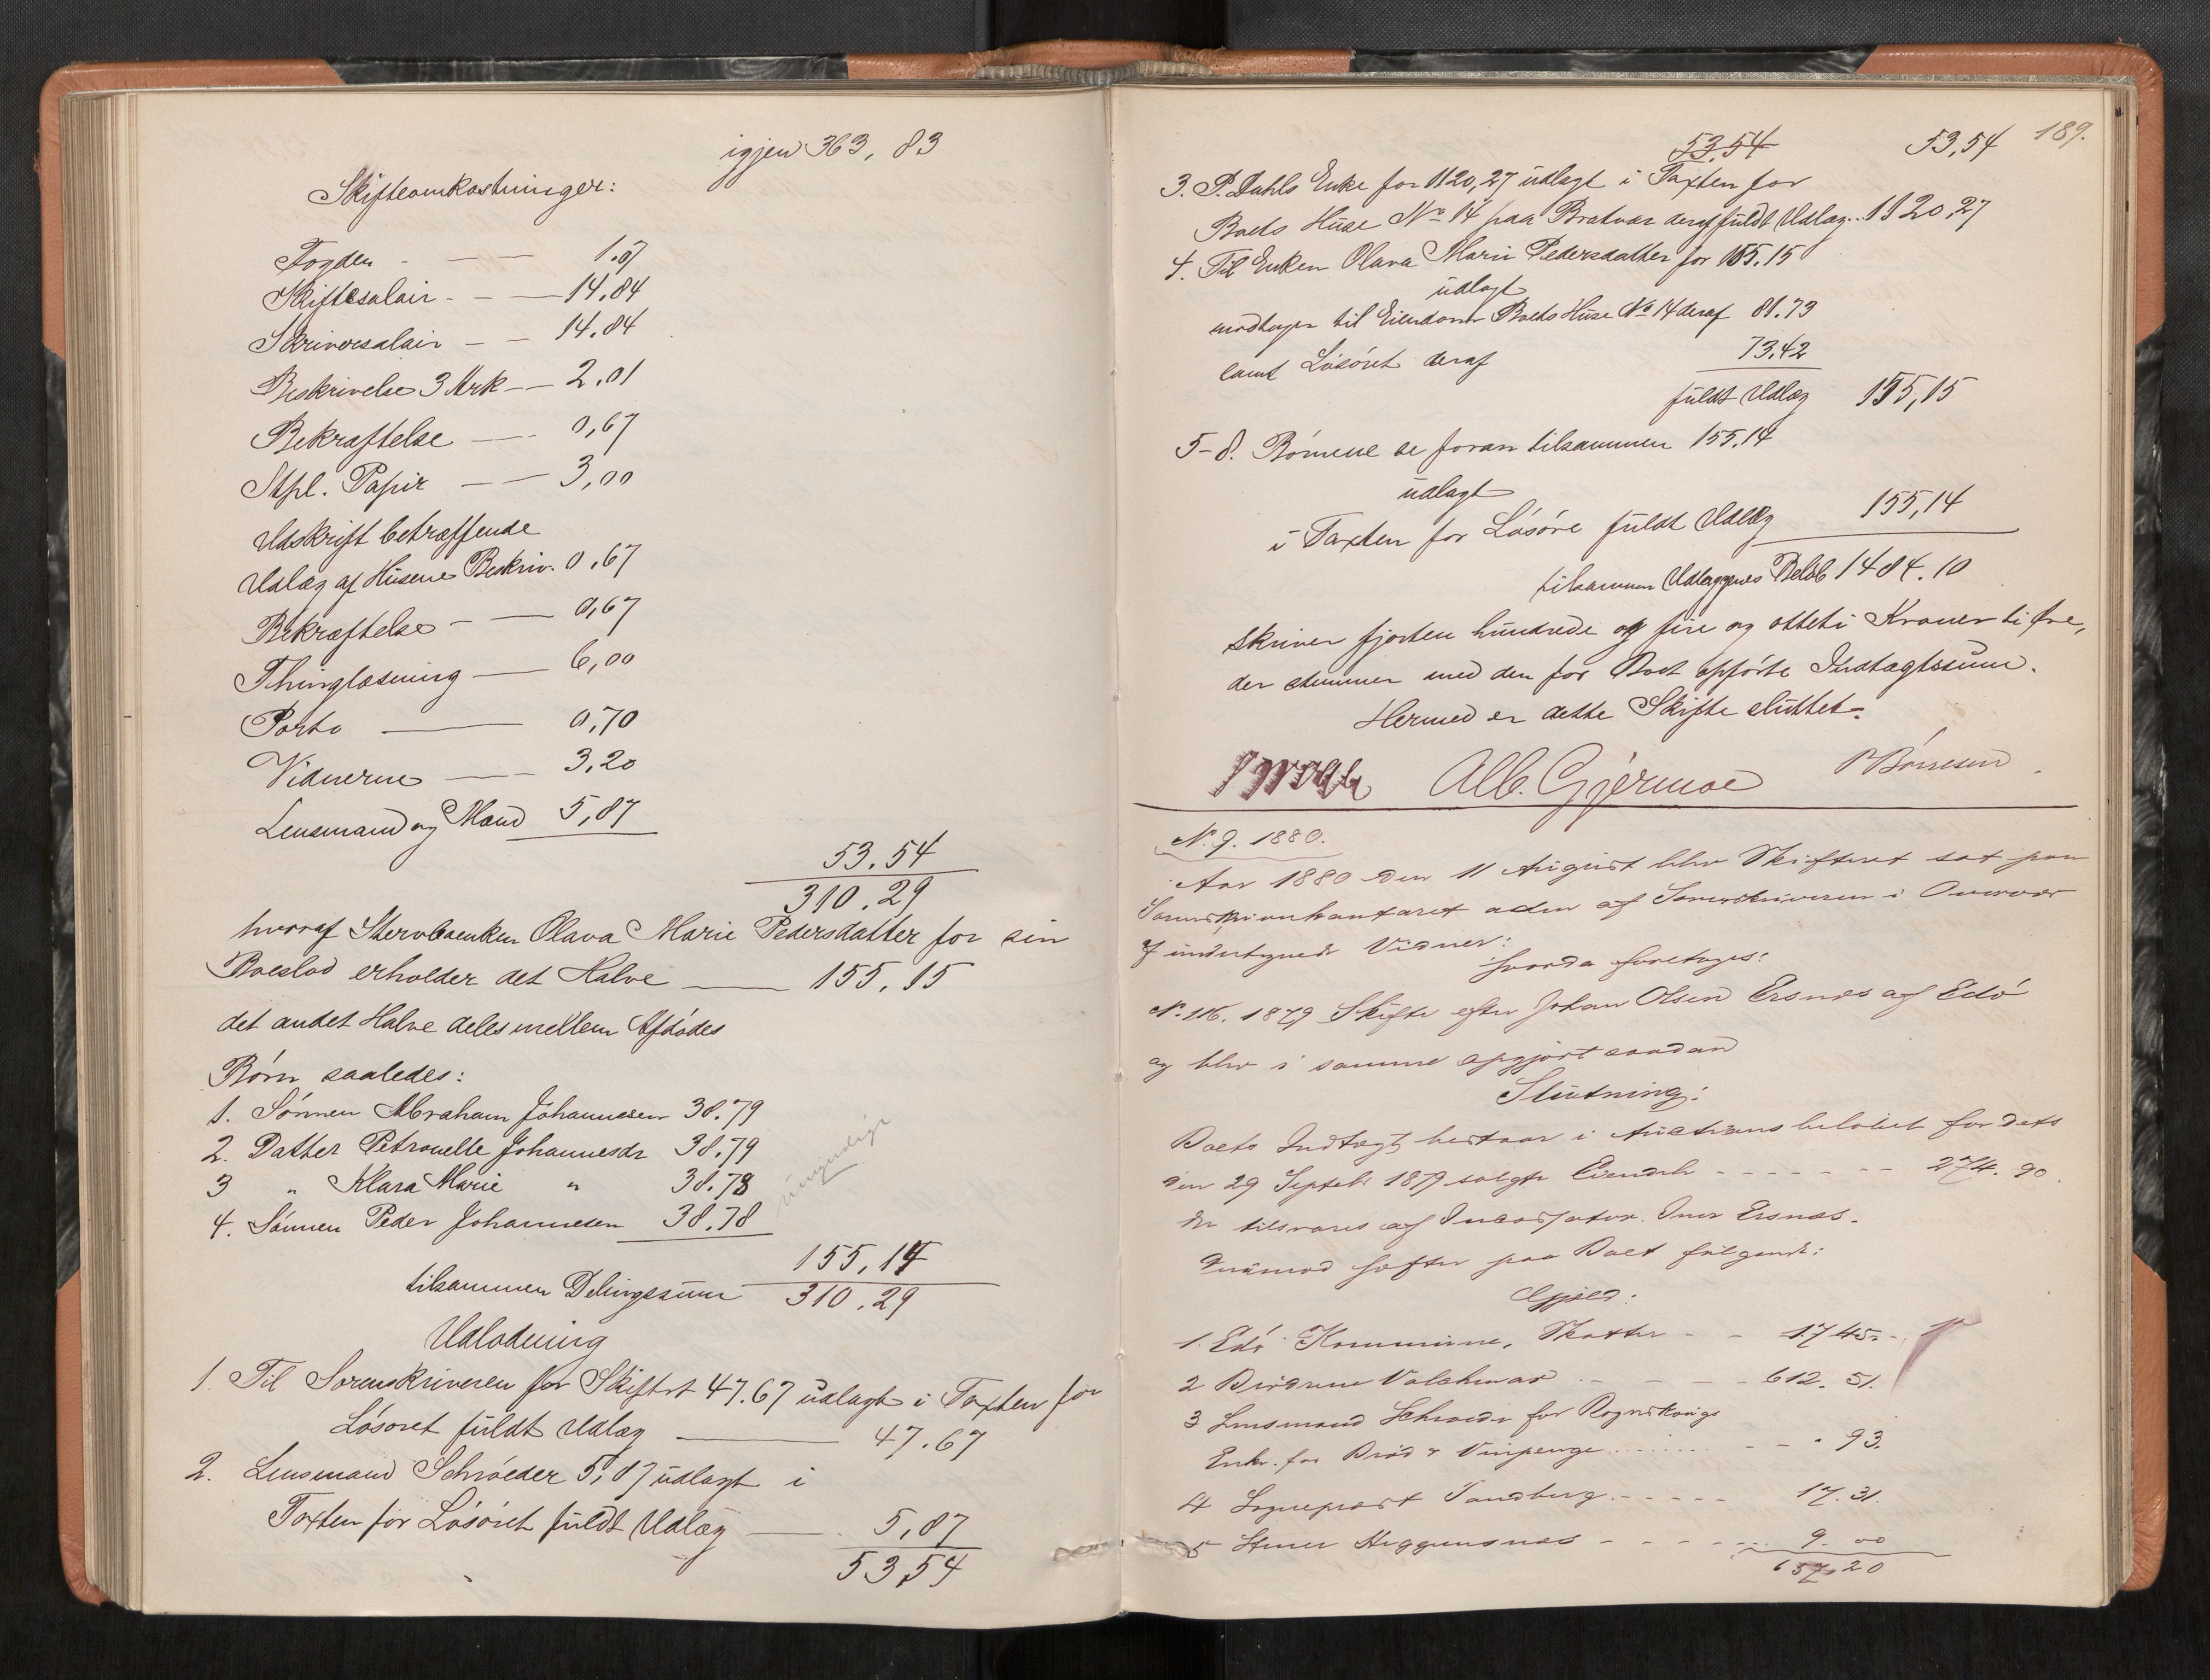 igjen 363, 83
Skifteomkostninger:
Fogden - — — 1.07
Skiftesalair - — — 14.84
Skriversalair — — 14.84
Beskrivelse 3 Ark — — 2.01
Bekræftelse — — 0,67
Stpl. Papir — — 3,00
Udskrift betræffende
Udlæg af Husene Beskriv. 0.67
Bekræftelse - — 0,67
Thinglæsning — 6,00
Porto — 0,70
Vidnerne — — 3,20
Lensmand og Mænd 5,87
53.54
310.29
hvoraf Stervboenken Olava Marie Pedersdatter for sin
Boeslod erholder det Halve — 155.15
det andet Halve deles mellem Afdødes
Børn saaledes:
1. Sønnen Abraham Johannesen 38.79
2. Datter Petronelle Johannesdr 38.79
3 " Klara Marie " 38.78
umyndige
4. Sønnen Peder Johannesen 38.78
155,14
tilsammen Delingssum 310.29
Udlodning
1. Til Sorenskriveren for Skiftet 47.67 udlagt i Taxten for
Løsøret fuldt Udlæg — 47.67
2. Lensmand Schrøeder 5,87 udlagt i
Taxten for Løsøret fuldt Udlæg — 5,87
53,54
189.
53,54 53,54
3. P. Dahls Enke for 1120,27 udlagt i Taxten for
Boets Huse No 14 paa Bratvær deraf fuldt Udlæg.. 1120,27
4. Til Enken Olava Marie Pedersdatter for 155.15
udlagt
modtagen til Eiendom Boets Huse No 14 deraf 81.73
samt Løsøret deraf 73.42
fuldt Udlæg 155,15
5-8. Børnene se foran tilsammen 155.14
udlagt
i Taxten for Løsøre fuldt Udlæg 155,14
tilsammen Udlæggenes Beløb 1484.10
skriver fjorten hundrede og fire og otteti Kroner ti Øre,
der stemmer med den for Boet opførte Indtægtssum.
Hermed er dette Skifte sluttet.
Alb. Gjermoe
No 9. 1880.
Aar 1880 den 11 August blev Skifteret sat paa
Sorenskriverkontoret af Sorenskriveren i Overvær
af undertegnede Vidner:
hvorda foretoges:
No 116. 1879 Skifte efter Johan Olsen Ersnæs af Edø
og blev i samme opgjort saadan
Slutning:
Boets Indtægt bestaar i Auctionsbeløbet for dets
den 29 Septebr 1879 solgte Eiendele - - - - - - - 274. 90.
der tilsvares af Incassator Iver Ersnæs.
Derimod hefter paa Boet følgende:
Gjæld:
1. Edø Kommune, Skatter - - 17 45.
2 Brødrene Volckmar - - - - 612. 51.
3 Lensmand Schrøder for Rognskougs
Enke for Brød & Vinpenge - - - 93.
4 Sognepræst Sandberg - - - - - 17. 31.
5 Stener Heggemsnæs - - - - - 9. 00
657. 20